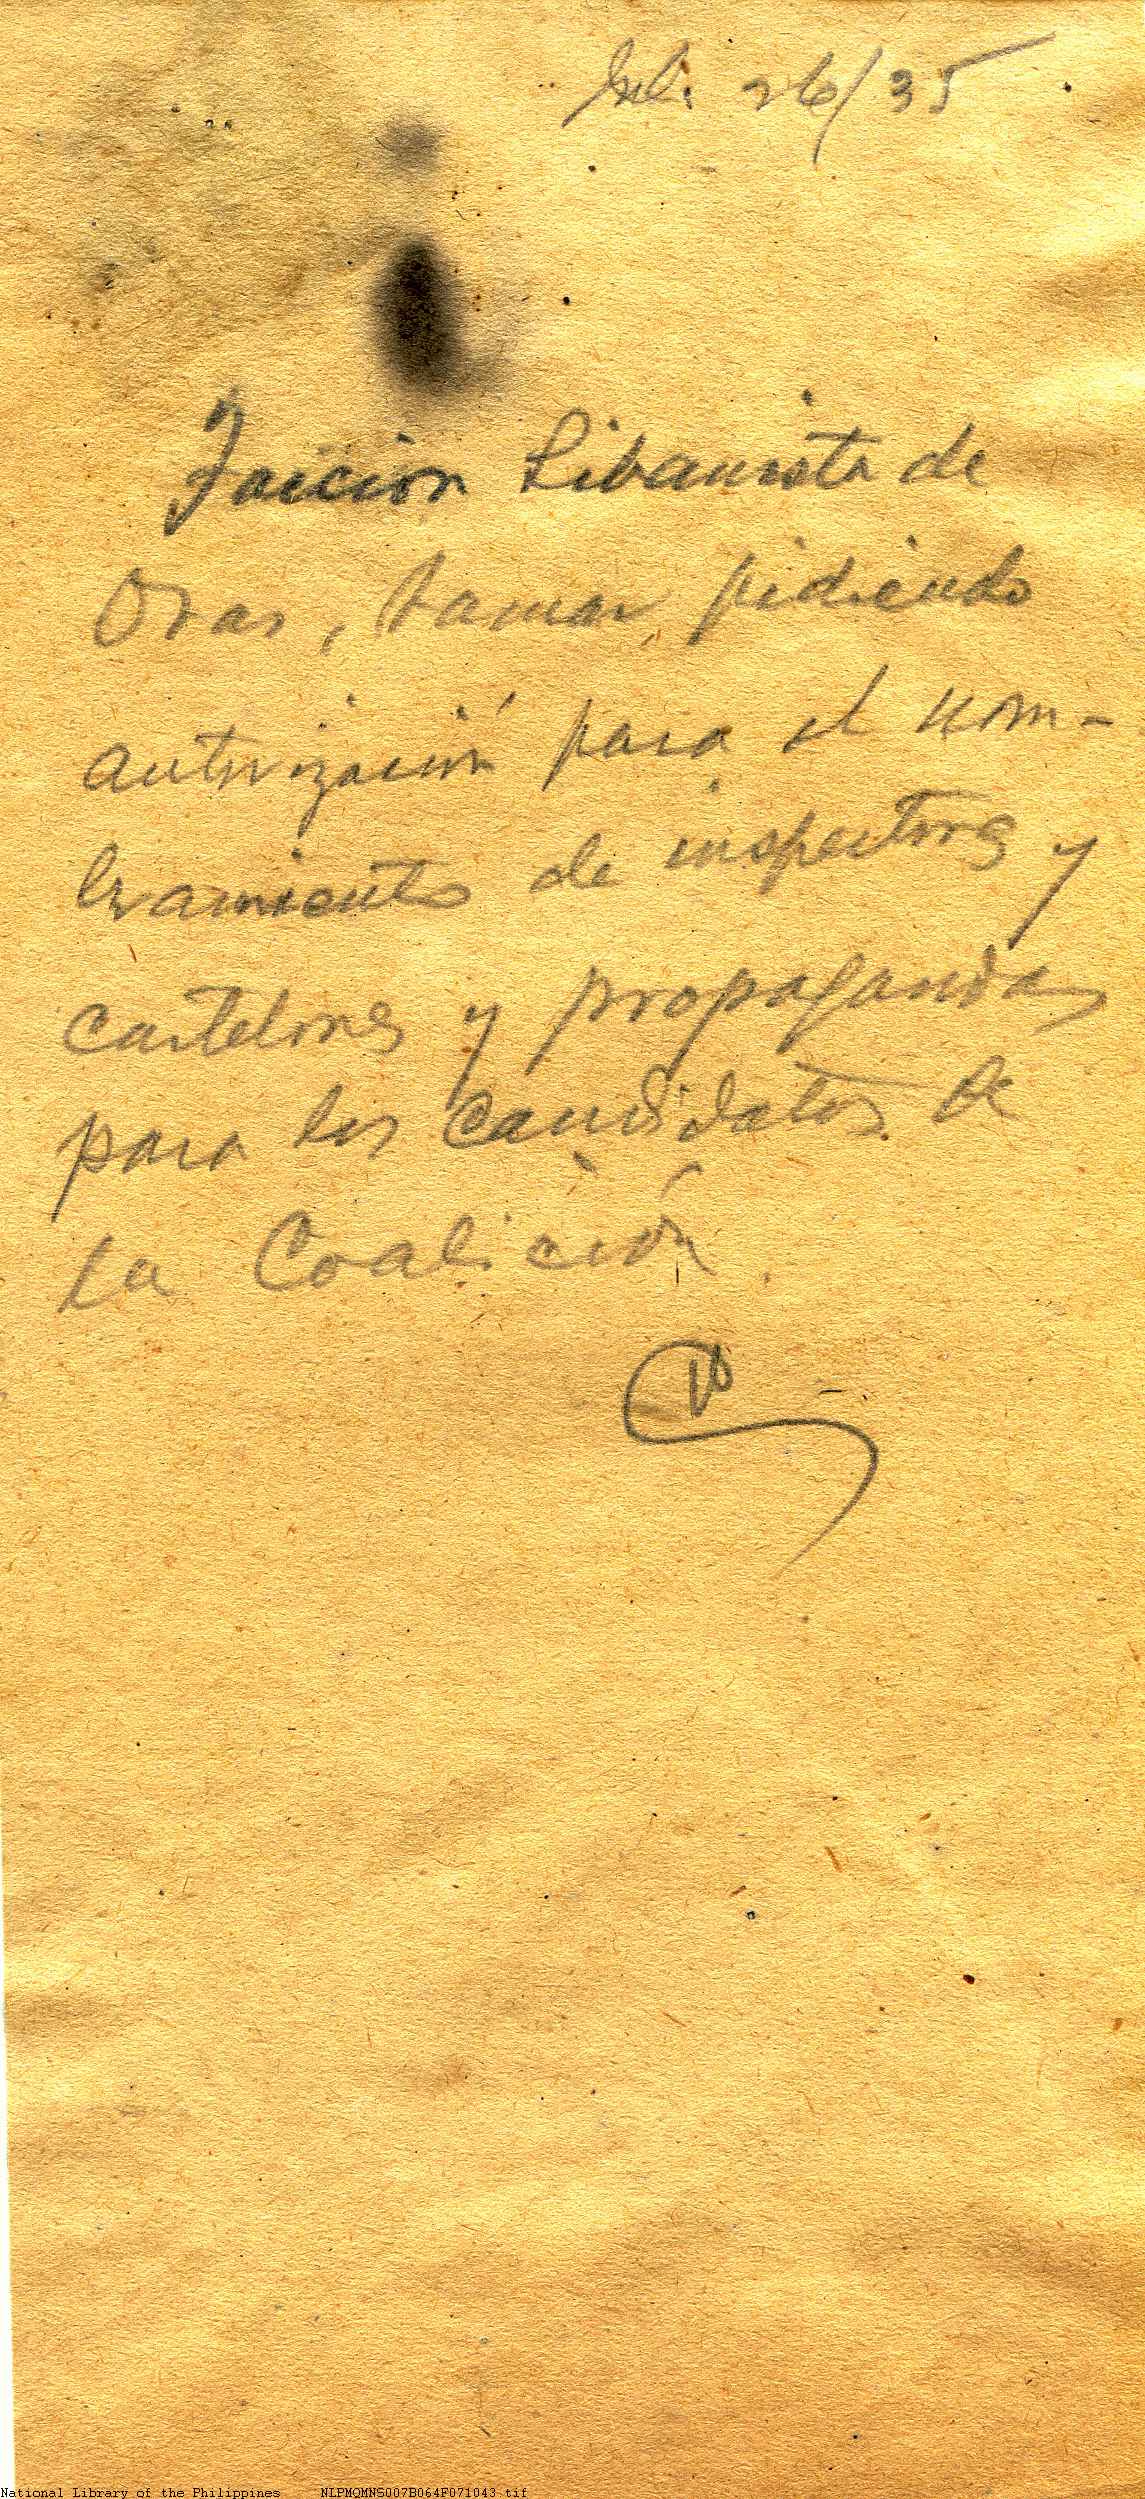 Jul. 26/35
Faccion Libanista de
Oras, Samar, pidiendo
autorización para el nom-
bramiento de inspectores y
cartelones y propaganda,
para los candidatos de
la Coalición.
National Library of the Philippines NLPMQMNS007B064F071043.tif